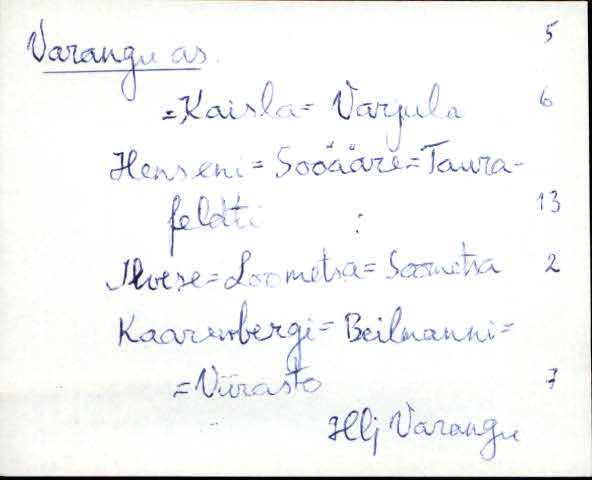 Varangu as. 5
=Kaisla= Varjula 6
Henseni= Sooääre=Taura-
feldti : 13
Ilvese=Loometsa=Soometsa 2
Kaarenbergi= Beilmanni=
=Viirasto 7
Hlj Varangu